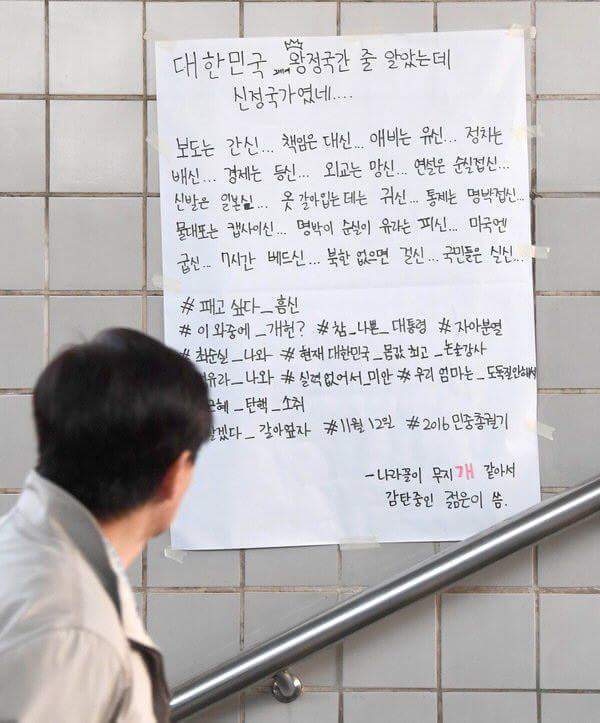 대한민국 왕정국간 줄 알았는데
신정국가였네....
보도는 간신... 책임은 대신... 애비는 유신... 정치는
배신... 경제는 등신... 외교는 망신... 연설은 순실접신...
신발은 일본실... 옷 갈아입는데는 귀신... 통제는 명박접신...
물대포는 캡사이신... 명박이 순실이 유라는 피신... 미국엔
굽신... 7시간 베드신... 북한 없으면 걸신... 국민들은 실신...
# 패고 싶다_흠신
# 이 와중에_개헌? # 참_나쁜_대통령 # 자아분열
# 최순실_나와 # 현재 대한민국_몸값 최고_논술강사
유라_나와 # 실력 없어서_미안 # 우리 엄마는_도둑질 안해서
근혜_탄핵_소취
갈아엎자 # 11월 12일 # 2016 민중총궐기
- 나라꼴이 무지개 같아서
감탄중인 젊은이 씀.